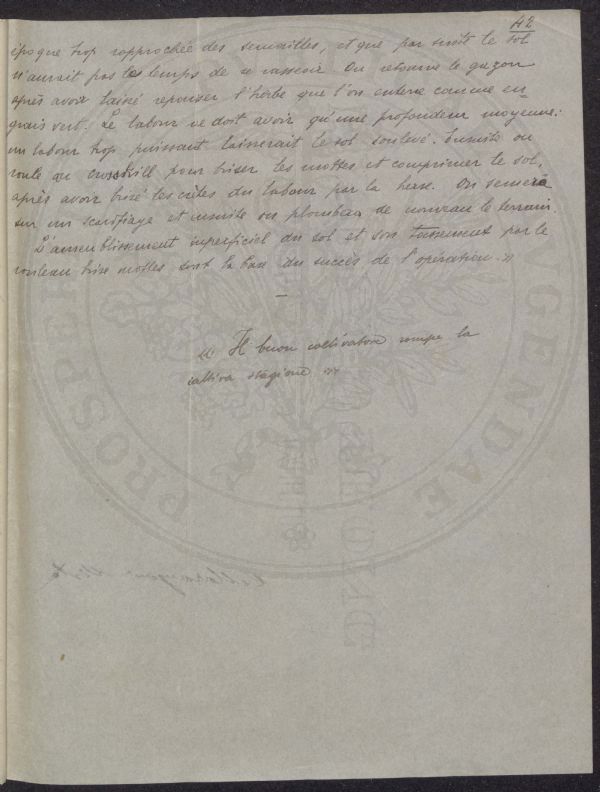 42
époque trop rapprochée des semailles, et que par suite le sol
n'aurait pas le temps de se rasseoir. On retourne le gazon
après avoir laissé repousser l'herbe que l'on enterre comme en
grais vert. Le labour ne doit avoir qu'une profondeur moyenne:
un labour trop puissant laisserait le sol soulevé. Ensuite on
roule au crosskill pour briser les mottes et comprimer le sol,
après avoir brisé les crêtes du labour par la herse. On sèmera
sur un scarifiage et ensuite on plombera de nouveau le terrain.
L'ameublissement superficiel du sol et son tassement par le
rouleau brise mottes sont la base du succès de l'opération."
"Il buon coltivatore rompe la
cattiva stagione"
PROSPER
GENDAE